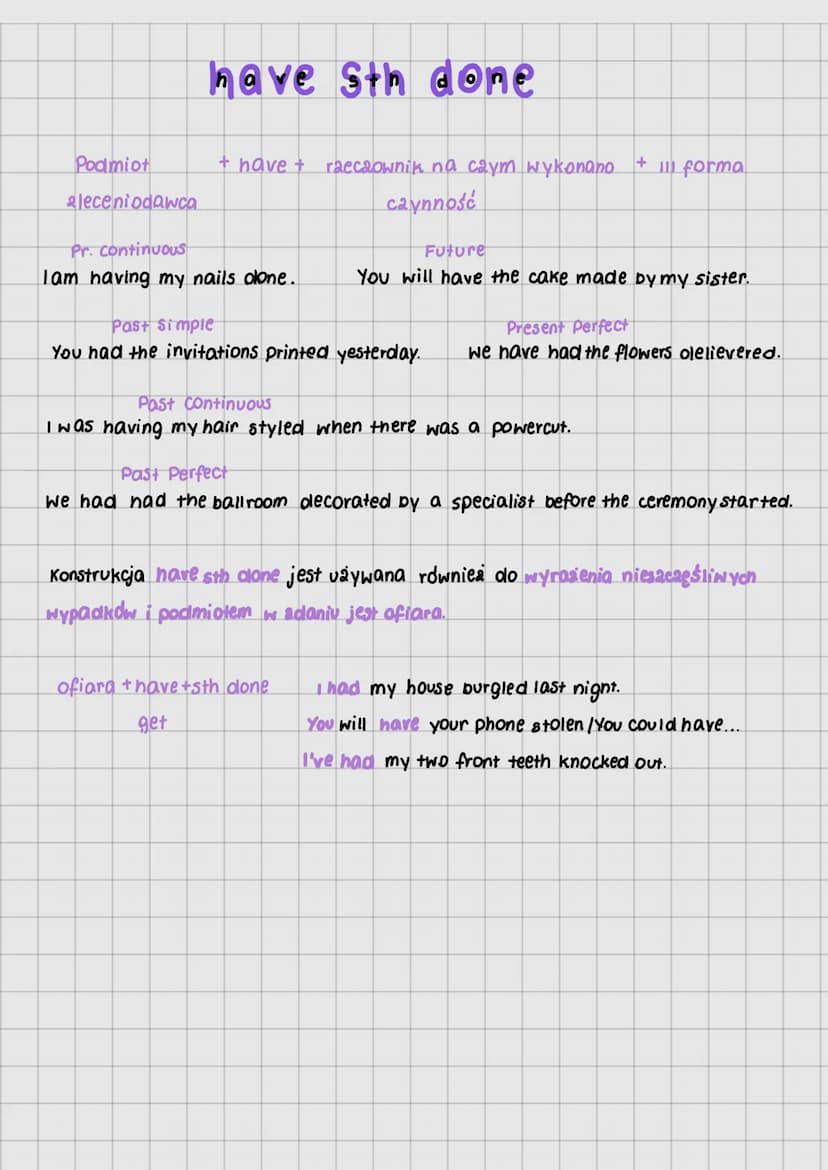 have sth done
Podmiot + have + rzeczownik na czym wykonano + III forma
zleceniodawca czynność
Pr. continuous Future
I am having my nails done. You will have the cake made by my sister.
Past Simple Present Perfect
You had the invitations printed yesterday. We have had the flowers delievered.
Past Continuous
I was having my hair styled when there was a powercut.
Past Perfect
We had had the ballroom decorated by a specialist before the ceremony started.
Konstrukcja have sth done jest używana również do wyrażenia nieszczęśliwych
wypadków i podmiotem w zdaniu jest ofiara.
ofiara + have + sth done I had my house burgled last night.
get You will have your phone stolen / You could have...
I've had my two front teeth knocked out.